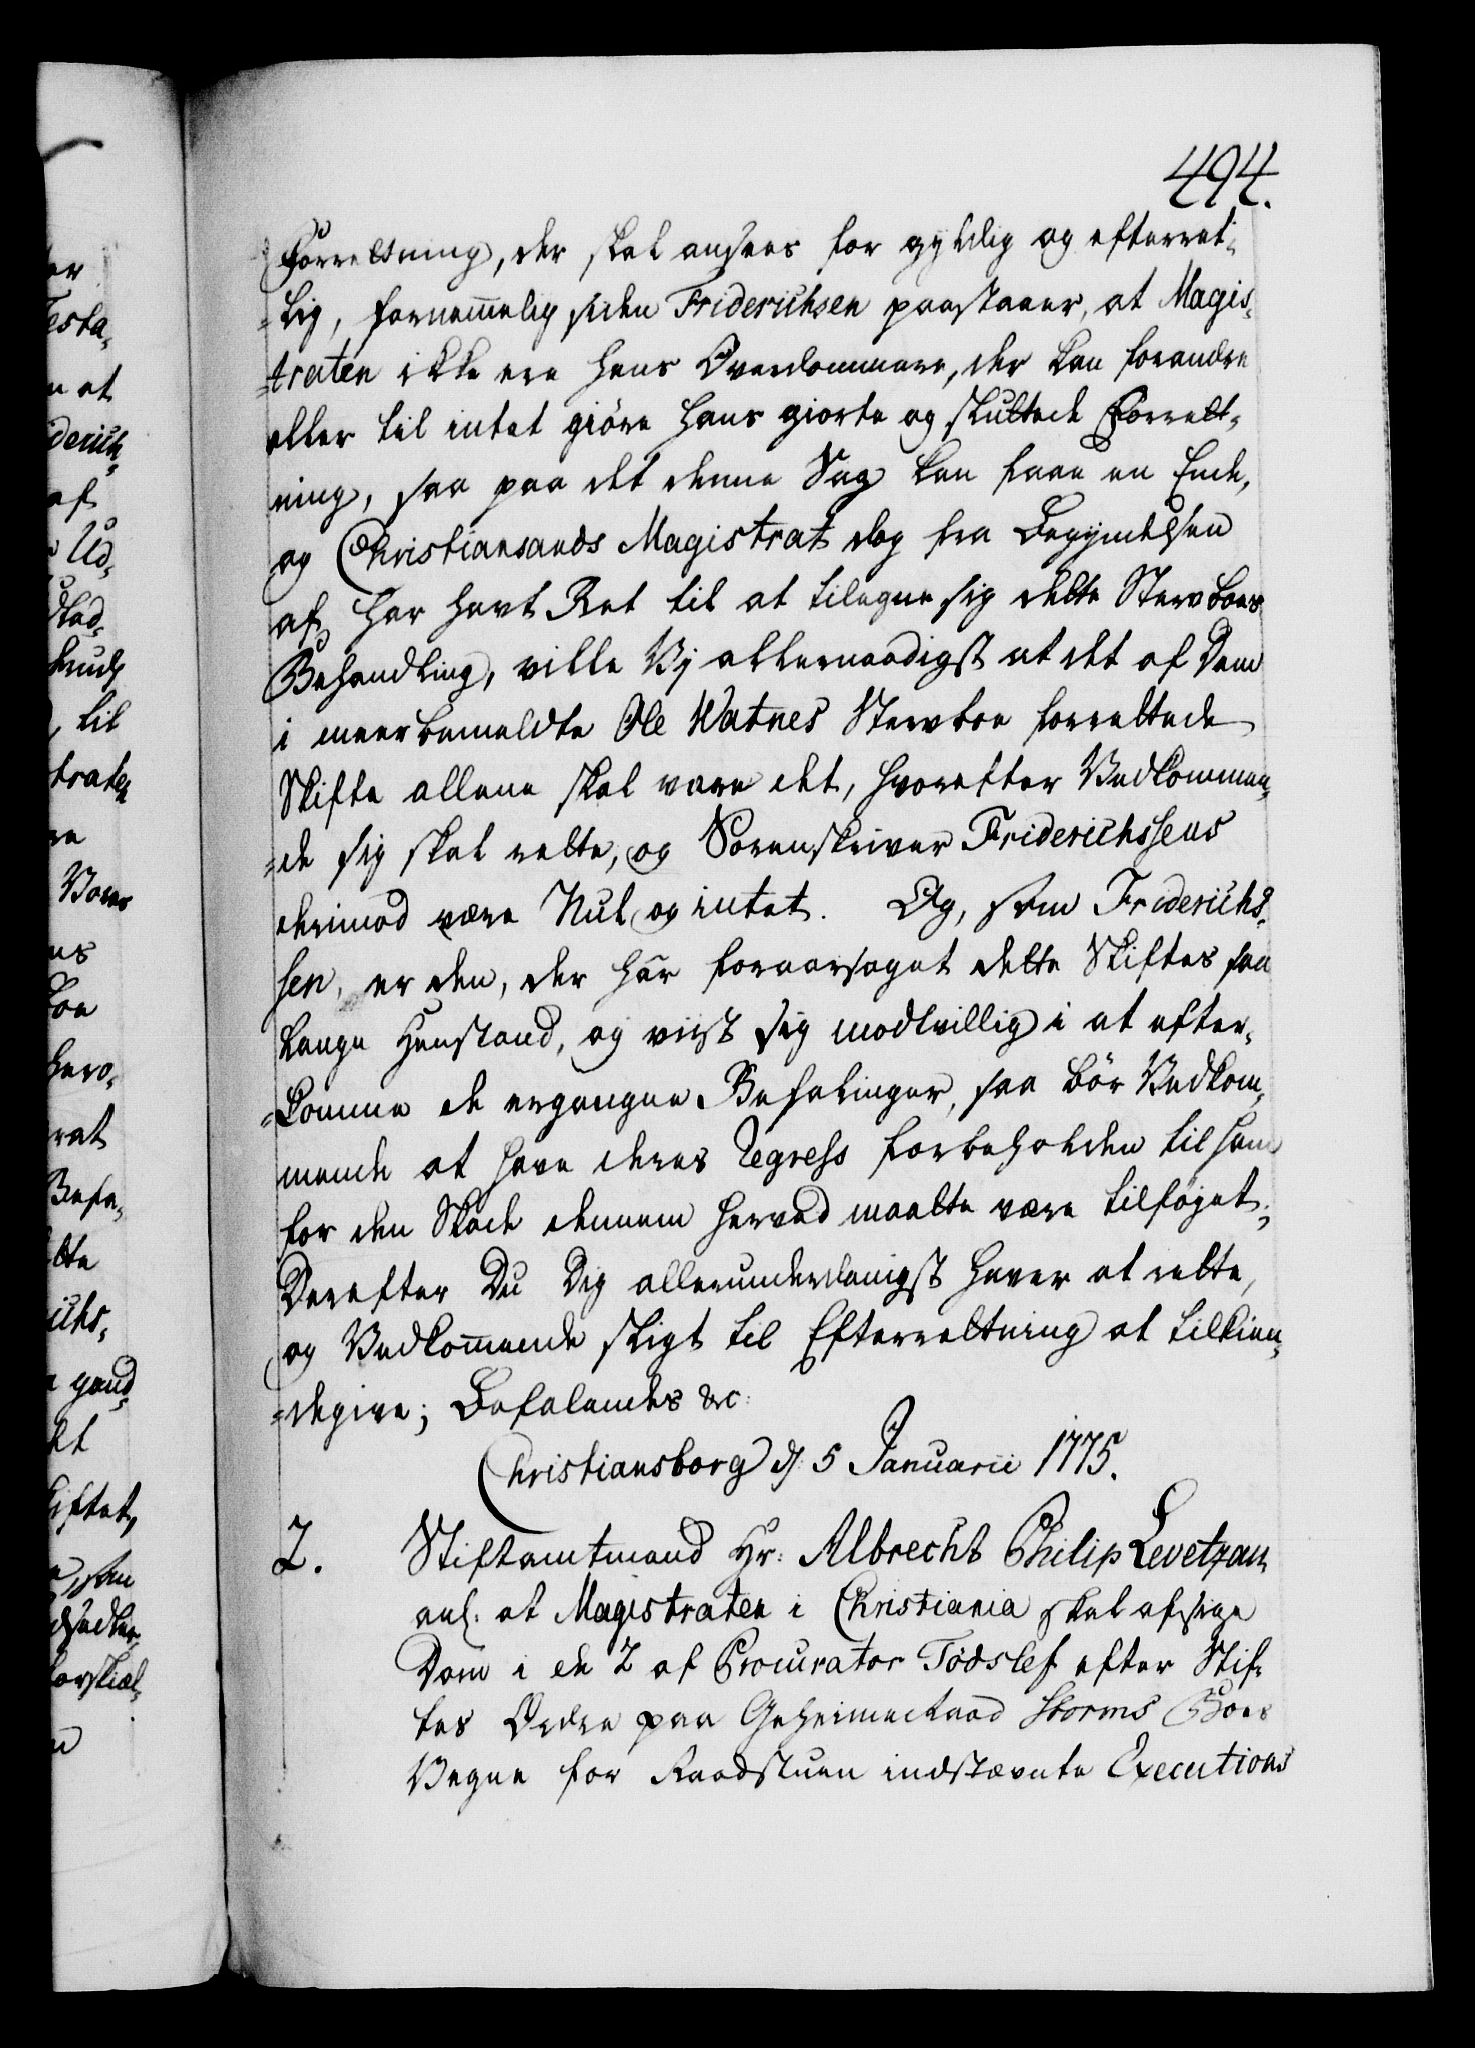 494.
Forretning, der skal ansees for gyldig og efterret-
=lig, fornemmelig siden Friderichsen paastaaer, at Magis-
=traten ikke ere hans Overdommere, der kan forandre
eller til intet giöre hans giorte og sluttede Forret-
ning, saa paa det denne Sag kan faae en Ende,
og Christiansands Magistrat dog fra Begyndelsen
af har havt Ret til at tilegne sig dette Stervboes
Behandling, ville Vi allernaadigst at det af Dem
i meerbemeldte Ole Watnes Stervboe forrettede
Skifte allene skal være det, hvorefter Vedkommen-
=de sig skal rette, og Sorenskriver Friderichsens
derimod være Nul og intet. Og, som Friderichs-
sen, er den, der har foraarsaget dette Skiftes saa
lange Henstand, og viist sig modvillig i at efter-
=komme de ergangne Befalinger, saa bör Vedkom-
mende at have deres Regress forbeholden til ham
for den Skade dennem herved maatte være tilföjet.
Derefter Du Dig allerunderdanigst haver at rette,
og Vedkommende sligt til Efterretning at tilkien-
=degive; Befalendes &c:
Christiansborg d: 5 Januarii 1775.
2. Stiftamtmand Hr: Albrecht Philip Levetzau
anl: at Magistraten i Christiania skal afsige
Dom i de 2 af Procurator Tödslef efter Stif-
tes Ordre paa Geheimeraad Storms Boes
Vegne for Raadstuen indstævnte Executions